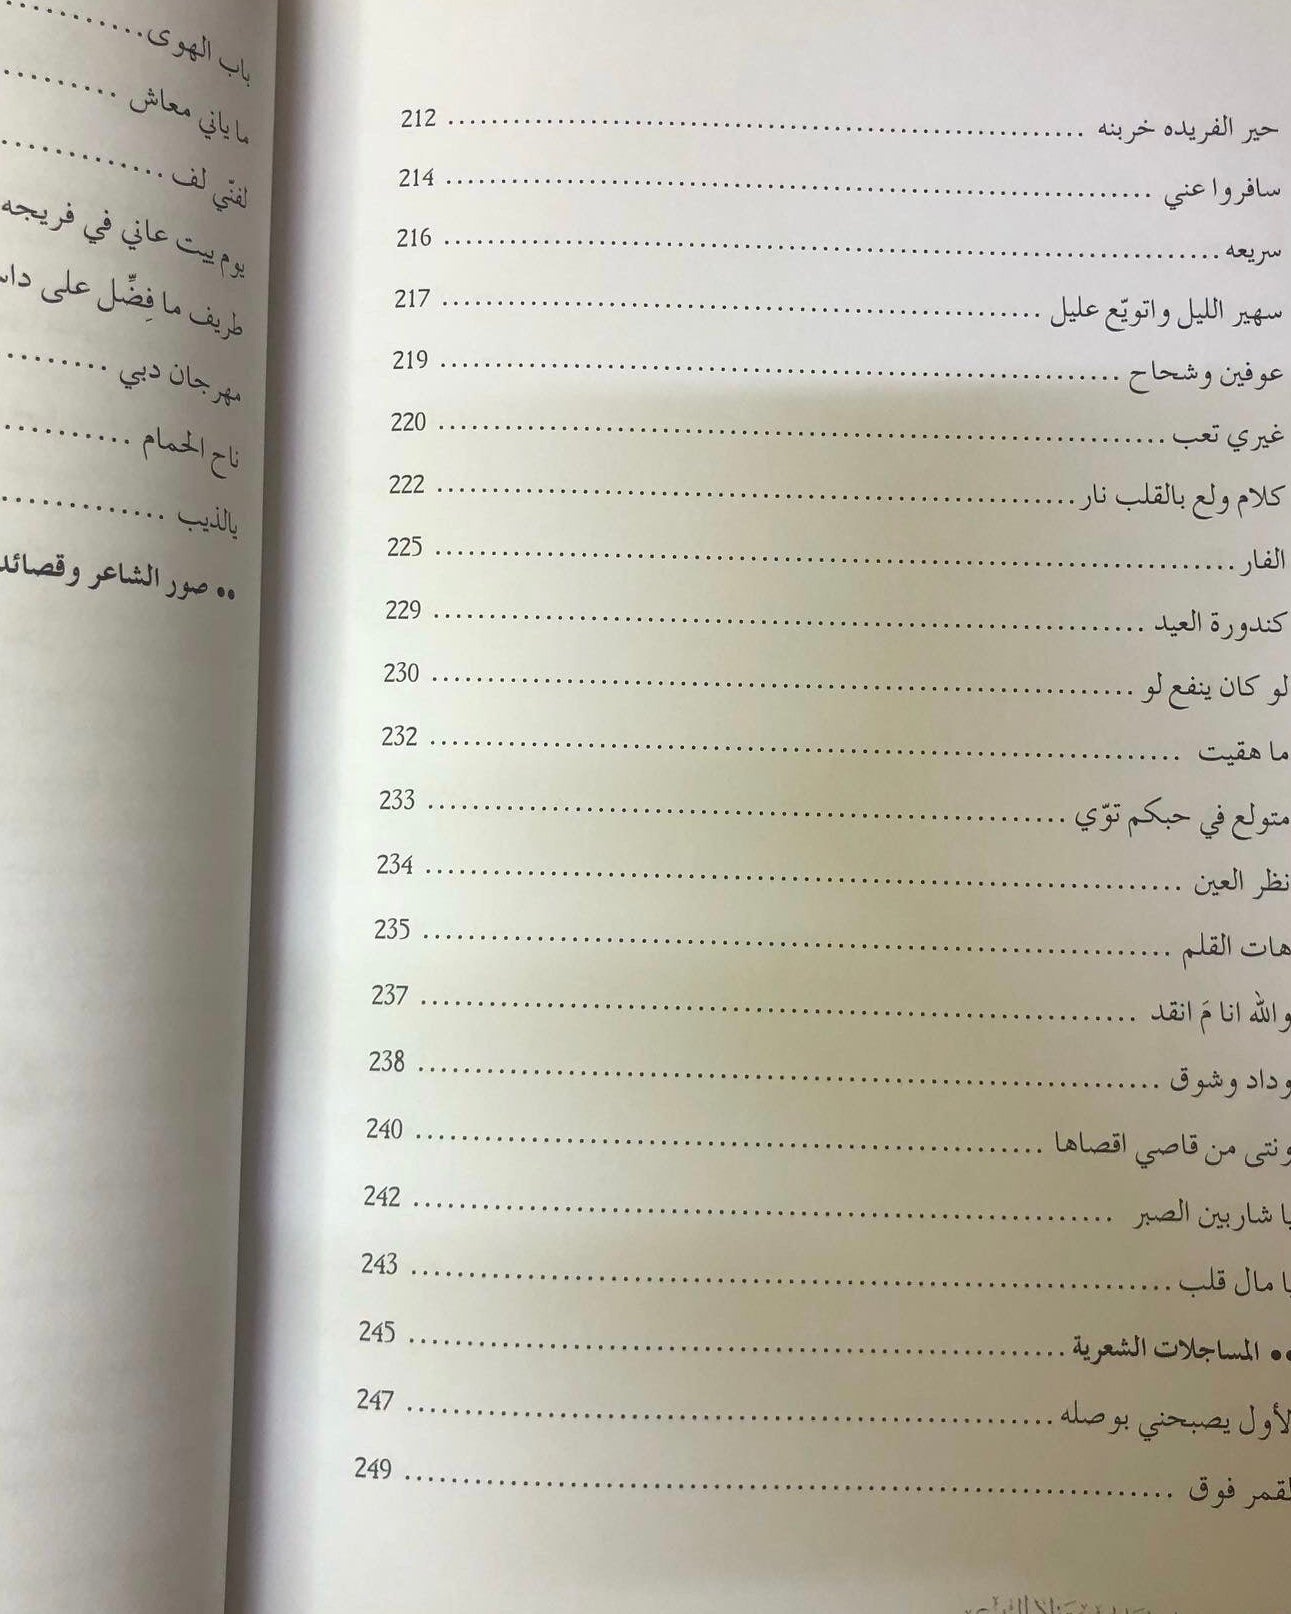 حير الفريده خربنه ........ 212
سافروا عني ........ 214
سريعه ........ 216
سهير الليل واتويّع عليل ........ 217
عوفين وشحاح ........ 219
غيري تعب ........ 220
كلام ولع بالقلب نار ........ 222
الفار ........ 225
كندورة العيد ........ 229
لو كان ينفع لو ........ 230
ما هقيت ........ 232
متولع في حبكم توّي ........ 233
نظر العين ........ 234
هات القلم ........ 235
والله انا مَ انقد ........ 237
وداد وشوق ........ 238
ونتى من قاصي اقصاها ........ 240
يا شاربين الصبر ........ 242
يا مال قلب ........ 243
•• المساجلات الشعرية ........ 245
الأول يصبحني بوصله ........ 247
القمر فوق ........ 249
باب الهوى ........
ما ياني معاش ........
لفنّي لف ........
يوم ييت عاني في فريجه
طريف ما فِضِّل على
مهرجان دبي ........
ناح الحمام ........
يالذيب ........
•• صور الشاعر وقصائد